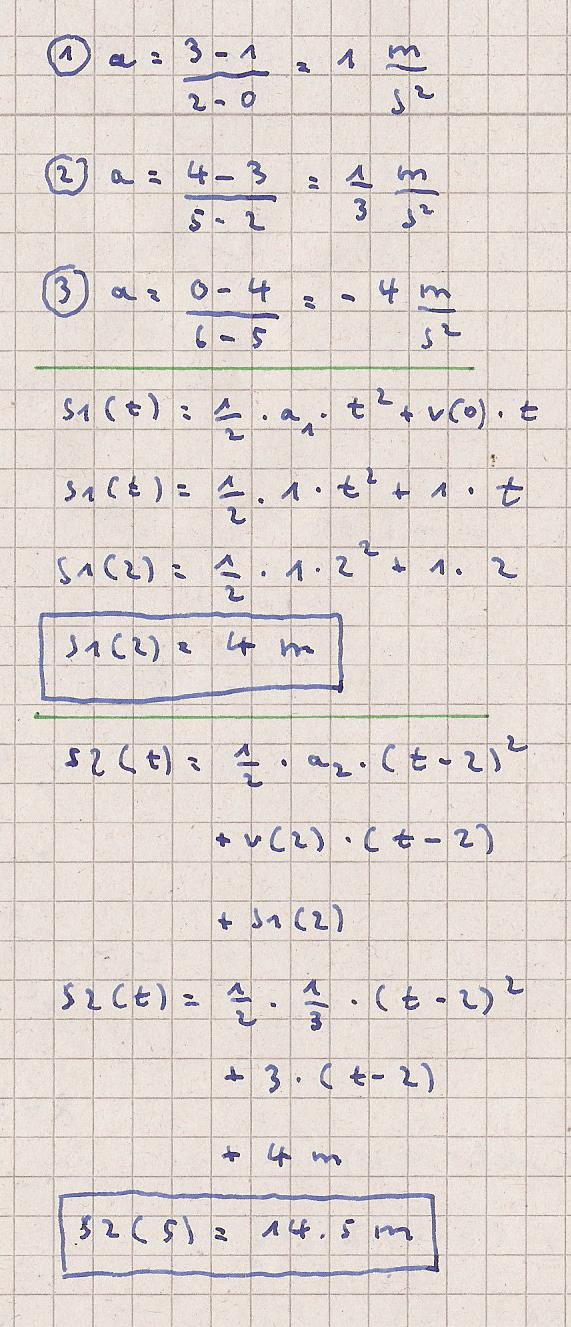 ① a = (3 - 1)/(2 - 0) = 1 m/s²
② a = (4 - 3)/(5 - 2) = 1/3 m/s²
③ a = (0 - 4)/(6 - 5) = - 4 m/s²
s1(t) = 1/2 · a₁ · t² + v(0) · t
s1(t) = 1/2 · 1 · t² + 1 · t
s1(2) = 1/2 · 1 · 2² + 1 · 2
s1(2) = 4 m
s2(t) = 1/2 · a₂ · (t - 2)²
+ v(2) · (t - 2)
+ s1(2)
s2(t) = 1/2 · 1/3 · (t - 2)²
+ 3 · (t - 2)
+ 4 m
s2(5) = 14.5 m